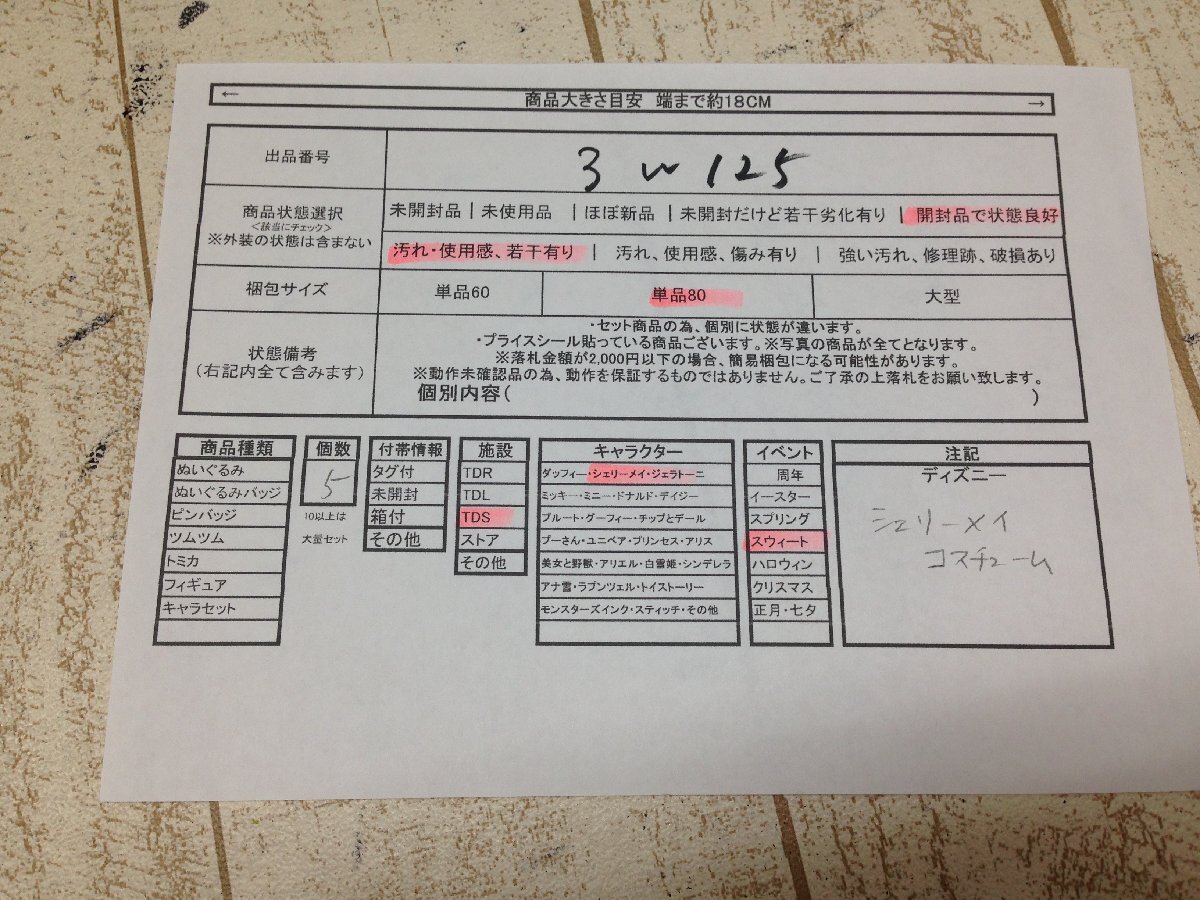 ← 商品大きさ目安 端まで約18CM →
出品番号 3 w 125
商品状態選択
<該当にチェック>
※外装の状態は含まない
未開封品 | 未使用品 | ほぼ新品 | 未開封だけど若干劣化有り | 開封品で状態良好
汚れ・使用感、若干有り | 汚れ、使用感、傷み有り | 強い汚れ、修理跡、破損あり
梱包サイズ 単品60 単品80 大型
状態備考
(右記内全て含みます)
・セット商品の為、個別に状態が違います。
・プライスシール貼っている商品ございます。※写真の商品が全てとなります。
※落札金額が2,000円以下の場合、簡易梱包になる可能性があります。
※動作未確認品の為、動作を保証するものではありません。ご了承の上落札をお願い致します。
個別内容( )
商品種類
ぬいぐるみ
ぬいぐるみバッジ
ピンバッジ
ツムツム
トミカ
フィギュア
キャラセット
個数
5
10以上は
大量セット
付帯情報
タグ付
未開封
箱付
その他
施設
TDR
TDL
TDS
ストア
その他
キャラクター
ダッフィー・シェリーメイ・ジェラトーニ
ミッキー・ミニー・ドナルド・デイジー
プルート・グーフィー・チップとデール
プーさん・ユニベア・プリンセス・アリス
美女と野獣・アリエル・白雪姫・シンデレラ
アナ雪・ラプンツェル・トイストーリー
モンスターズインク・スティッチ・その他
イベント
周年
イースター
スプリング
スウィート
ハロウィン
クリスマス
正月・七夕
注記
ディズニー
シェリーメイ
コスチューム